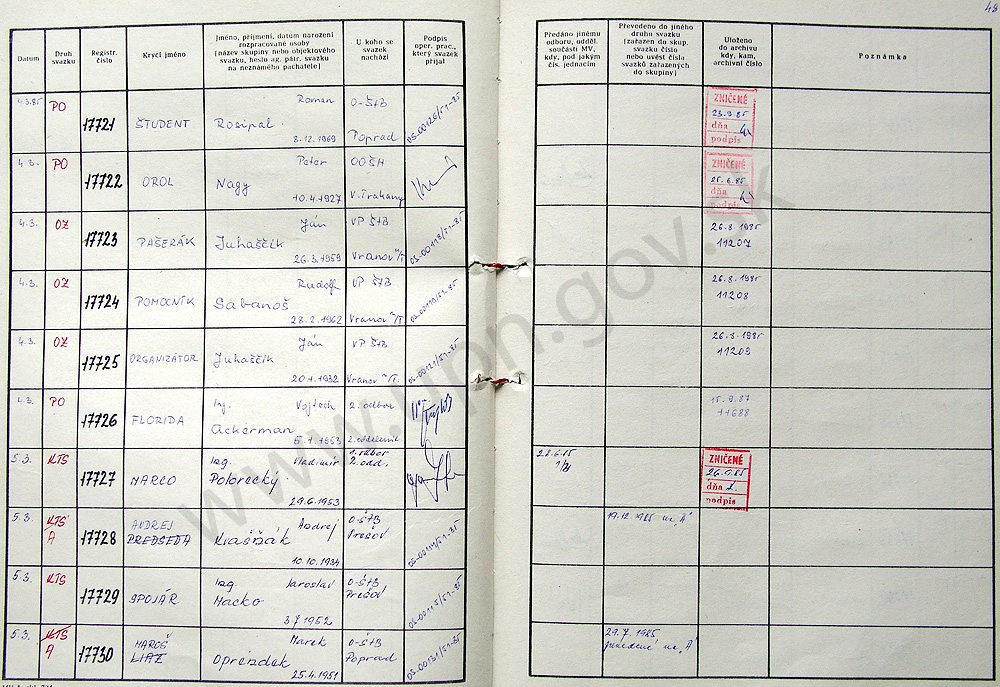 49
Datum
Druh svazku
Registr. číslo
Krycí jméno
Jméno, příjmení, datum narození
rozpracované osoby
(název skupiny nebo objektového
svazku, heslo ag. pátr. svazku
na neznámého pachatele)
U koho se
svazek
nachází
Podpis
oper. prac.,
který svazek
přijal
Předáno jinému
odboru, odděl.
součásti MV,
kdy, pod jakým
čís. jednacím
Převedeno do jiného
druhu svazku
(zařazen do skup.
svazku číslo
nebo uvést čísla
svazků zařazených
do skupiny)
Uloženo
do archivu
kdy, kam,
archivní číslo
Poznámka
4.3.85 PO 17721 ŠTUDENT Roman
Rosipal
8.12.1969
O-ŠtB
Poprad
OS-00120/51-85
ZNIČENÉ
23.9.85
dňa
podpis
4.3. PO 17722 OROL Peter
Nagy
10.4.1927
OOŠH
V. Trakany
ZNIČENÉ
25.6.85
dňa
podpis
4.3. OZ 17723 PAŠERÁK Ján
Juhaščik
26.3.1959
VP ŠtB
Vranov n/T.
OS-00118/51-85
26.8.1985
11207
4.3. OZ 17724 POMOCNÍK Rudolf
Sabanoš
28.2.1962
VP ŠtB
Vranov n/T.
OS-00119/51-85
26.8.1985
11208
4.3. OZ 17725 ORGANIZÁTOR Ján
Juhaščik
20.1.1932
VP ŠtB
Vranov n/T.
OS-00121/51-85
26.8.1985
11209
4.3. PO 17726 FLORIDA Ing. Vojtech
Ackerman
5.1.1953
2. odbor
2. oddelenie
15.9.87
11688
5.3. KTS 17727 MARCO Ing. Vladimír
Polorecký
29.6.1953
1. odbor
2. odd.
28.6.85
ZNIČENÉ
26.9.85
dňa
podpis
5.3. KTS A 17728 ANDREJ
PREDSEDA
Andrej
Krašňák
10.10.1934
O-ŠtB
Prešov
OS-00114/51-85
19.12.1985 na „A"
5.3. KTS 17729 SPOJÁR Ing. Jaroslav
Macko
3.7.1952
O-ŠtB
Prešov
OS-00115/51-85
5.3. KTS A 17730 MAROŠ
LIAZ
Marek
Oprendek
25.4.1951
O-ŠtB
Poprad
OS-00131/51-85
29.7.1985
prevedené na „A"
www.upn.gov.sk